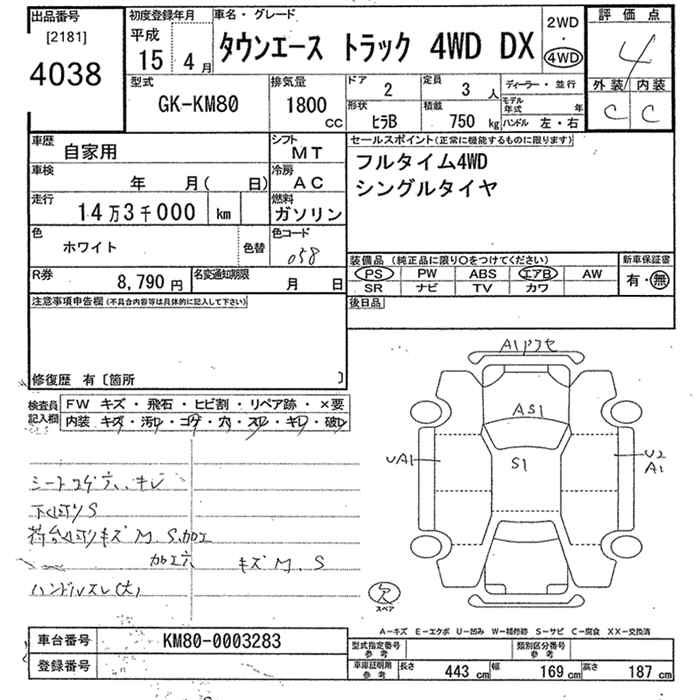 出品番号 初度登録年月 車名・グレード 2WD 評価点
[2181] 平成 タウンエース トラック 4WD DX 4WD 4
4038 15年 4月
型式 排気量 ドア 定員 ディーラー・並行 外装 内装
GK-KM80 1800CC 2 3人 モデル年式 年 C C
形状 積載
ヒラB 750kg ハンドル 左・右
車歴 自家用 シフト MT セールスポイント(正常に機能するものに限ります)
フルタイム4WD
車検 年 月( 日) 冷房 AC シングルタイヤ
走行 14万3千000 km 燃料 ガソリン
色 ホワイト 色替 色コード 058
装備品(純正品に限り○をつけてください) 新車保証書
PS PW ABS エアB AW 有・無
R券 8,790円 名変通知期限 月 日 SR ナビ TV カワ
注意事項申告欄(不具合内容等は具体的に記入して下さい) 後日品
修復歴 有〔箇所 〕
A1
AS1
S1
UA1
U2
A1
検査員記入欄 FW キズ・飛石・ヒビ割・リペア跡・×要
内装 キズ・汚レ・コゲ・穴・スレ・キレ・破レ
シートコゲ穴、キレ
下廻りS
荷台廻りキズ M.S.加工
加工穴 キズ M.S
ハンドルスレ(大)
スペア
A-キズ E-エクボ U-凹み W-補修跡 S-サビ C-腐食 XX-交換済
車台番号 KM80-0003283 型式指定番号 参考 類別区分番号 参考
登録番号 車庫証明用 参考 長さ 443cm 幅 169cm 高さ 187cm